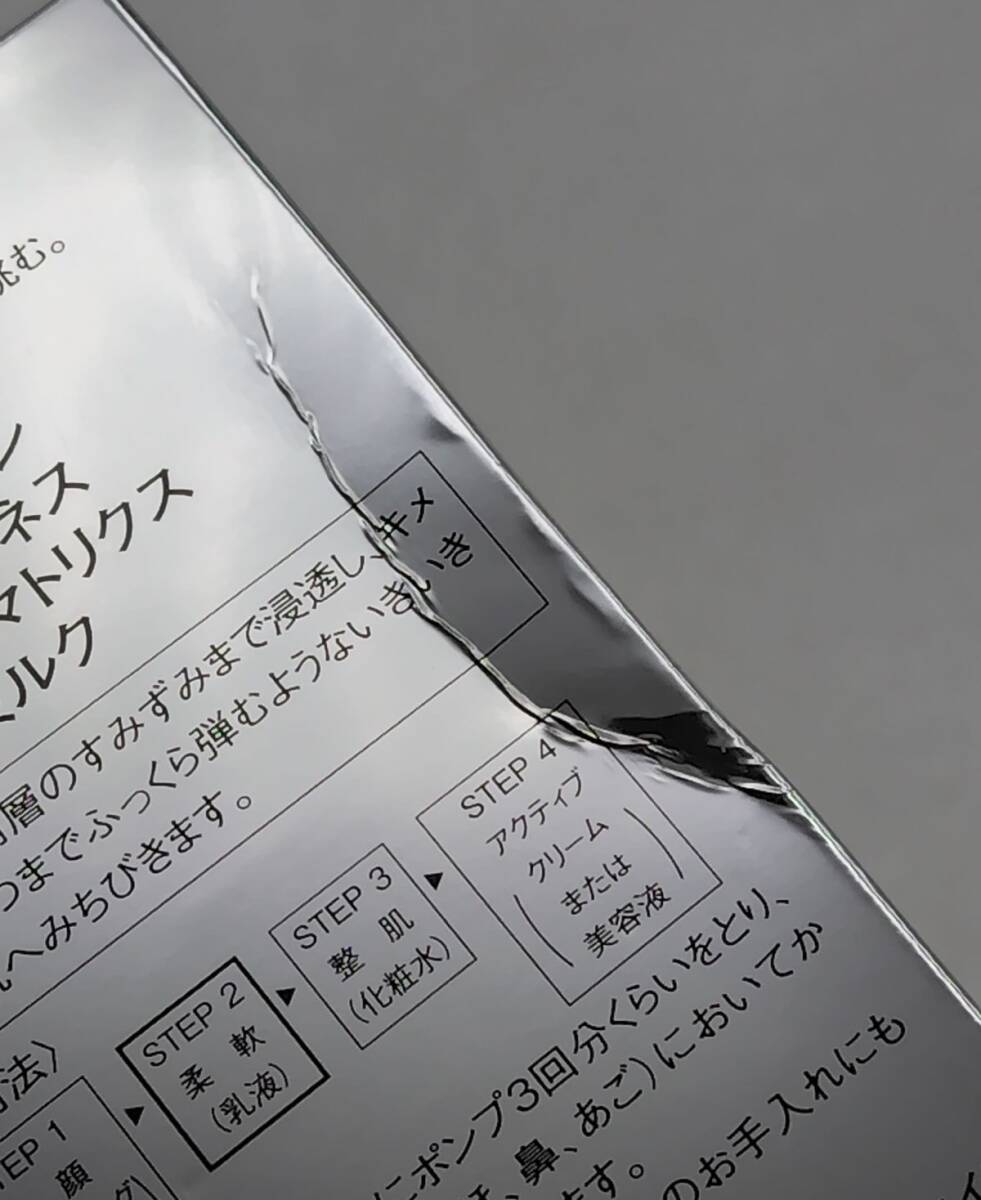 挑む。
ン
ネス
マトリクス
ミルク
層のすみずみまで浸透し、キメ
つまでふっくら弾むようないきいき
へみちびきます。
法〉
STEP 1
顔
STEP 2
柔 軟
(乳液)
STEP 3
整 肌
(化粧水)
STEP 4
アクティブ
クリーム
または
美容液
にポンプ3回分くらいをとり、
、鼻、あご)においてか
ます。
のお手入れにも